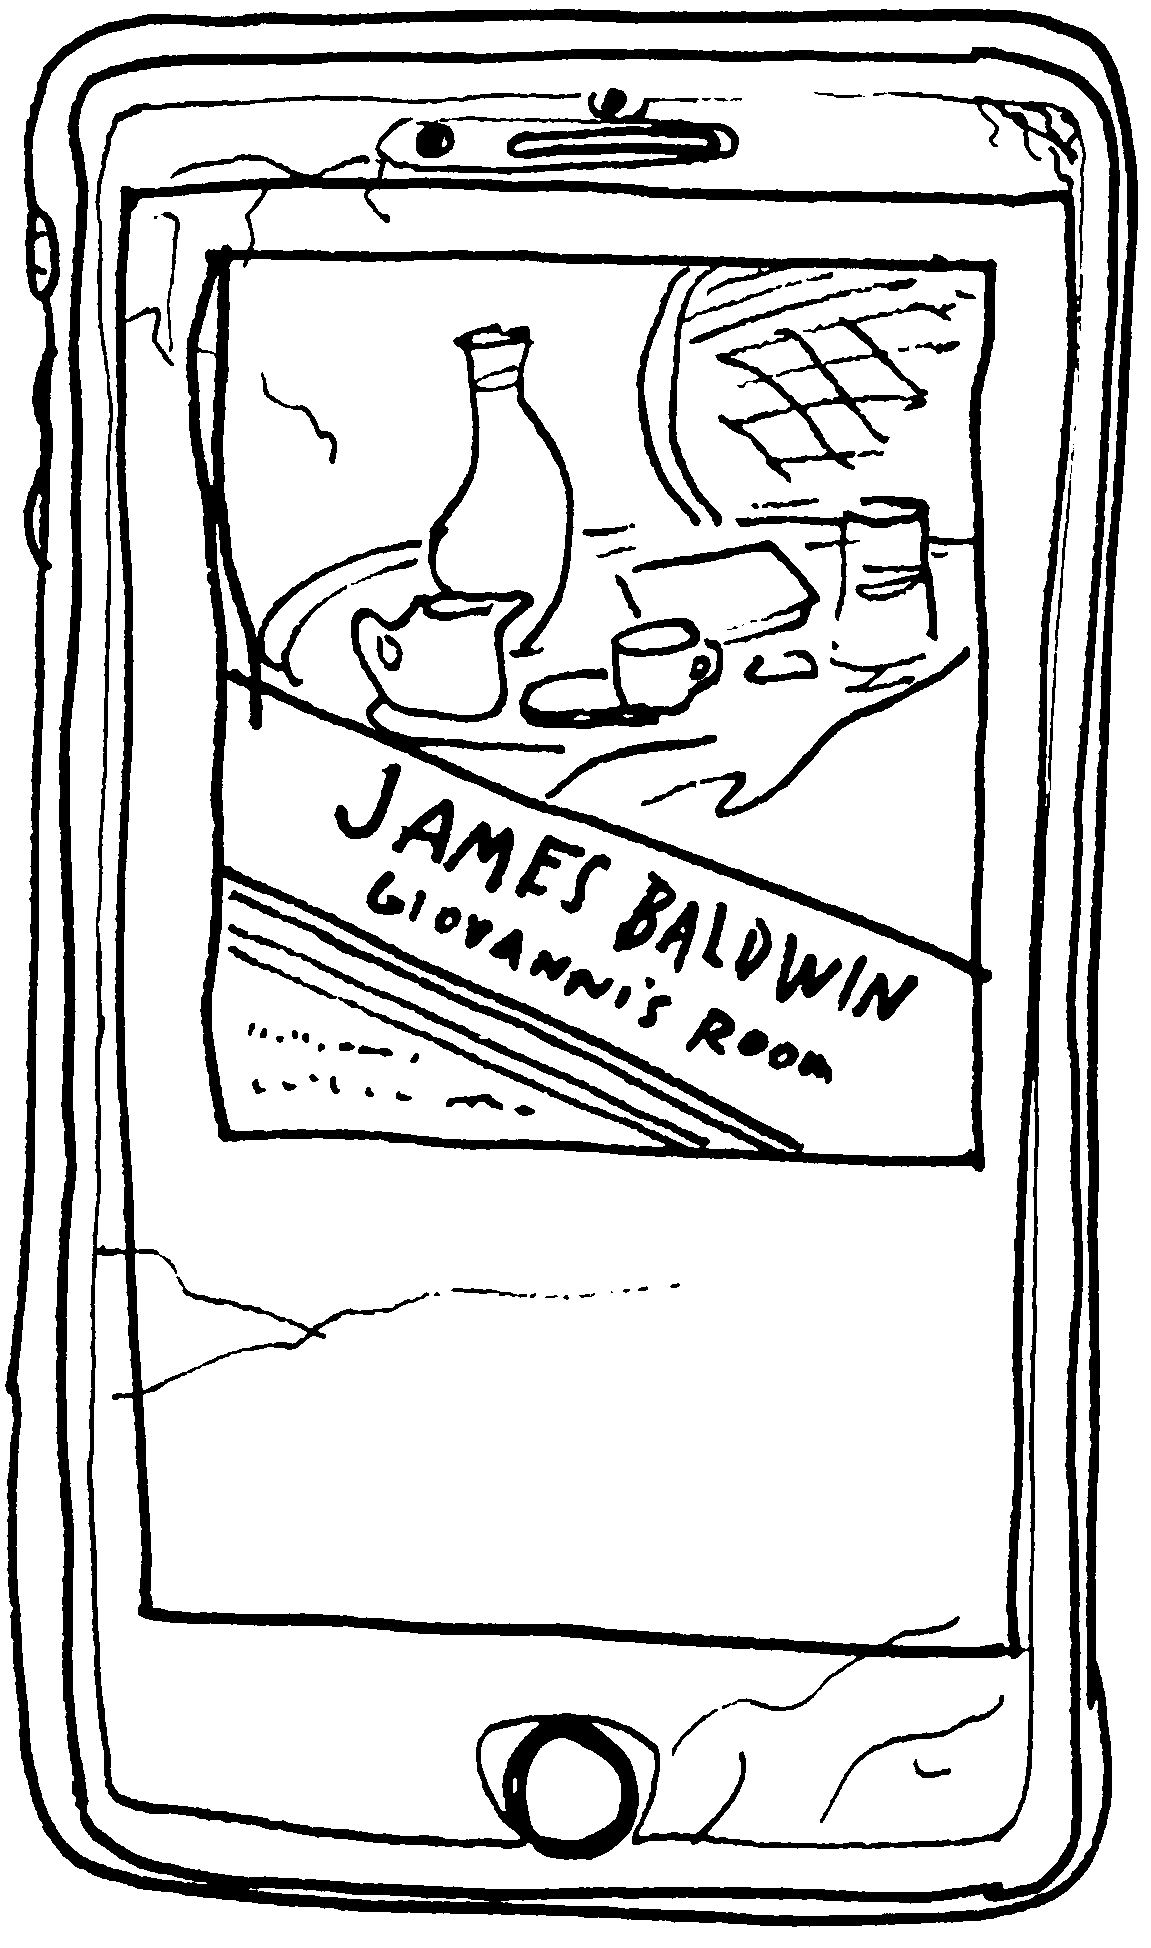 JAMES BALDWIN
GIOVANNI'S ROOM